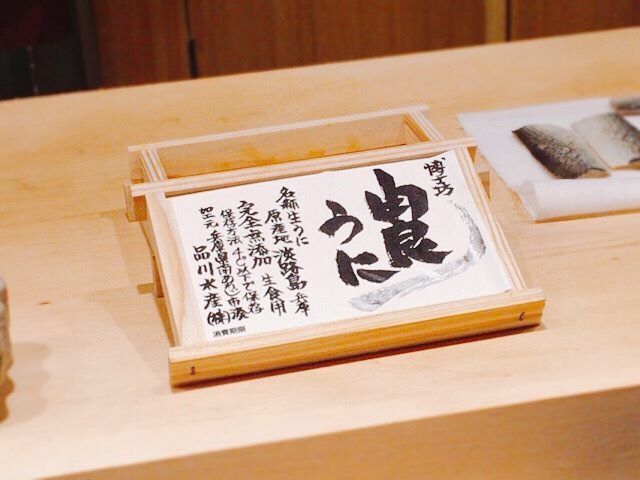 由良
うに
名称 生うに
原産地 淡路島 兵庫
完全無添加 生食用
保存方法 4℃以下で保存
加工元 兵庫県南あわじ市湊
品川水産(株)
消費期限